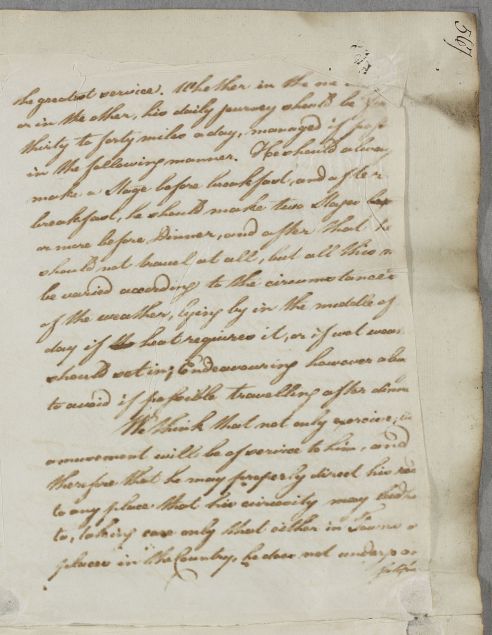 567
the greatest service. Whether in the one
or in the other, his daily journey should be
thirty to forty miles a day, managed if
in the following manner. He should
make a Stage before breakfast, and after
breakfast, he should make two Stages
or more before Dinner, and after that he
should not travel at all, but all this
be varied according to the circumstances
of the weather, lying by in the middle of
day if the heat requires it, or if wet
should set in; Endeavouring however
to avoid if possible travelling after
We think that not only exercise,
amusement will be of service to him, and
therefore that he may properly direct his
to any place that his curiosity may
to, taking care only that either in Towns
places in the Country, he does not